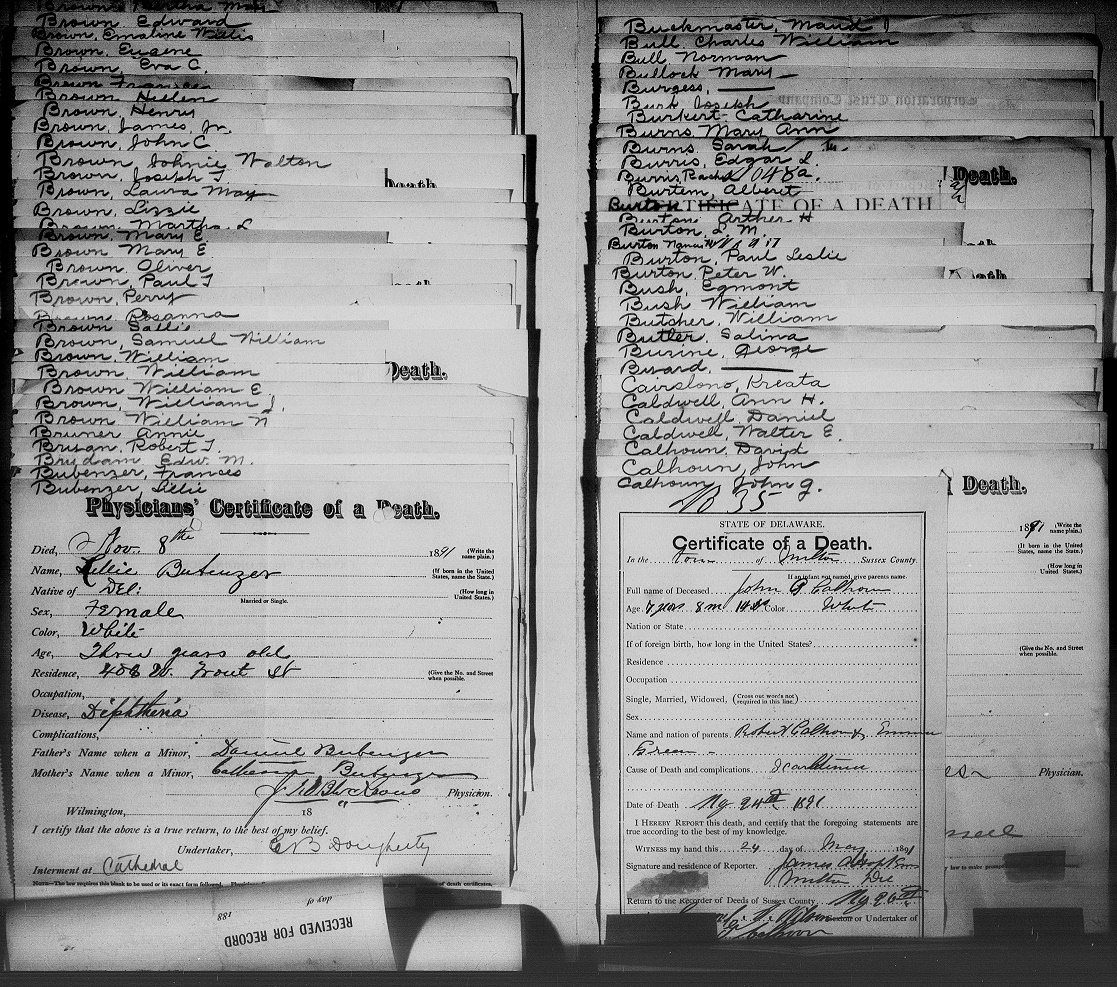 Brown, Bertha May
Brown, Edward
Brown, Emaline Willis
Brown, Eugene
Brown, Eva C.
Brown, Frances
Brown, Hellen
Brown Henry
Brown, James, Jr.
Brown, John C.
Brown, Johnie Walton
Brown, Joseph T
Brown, Laura May
Death.
Brown, Lizzie
Brown, Martha L
Brown, Mary E.
Brown Mary E.
Brown Oliver
Brown, Paul T
Brown, Perry
Brown, Rosanna
Brown Sallie
Brown, Samuel William
Brown, William
Brown William
Death.
Brown William E
Brown, William J.
Brown William W
Bruner Annie
Robert T.
Edw. M.
Bubenzer, Frances
Bubenzer, Lillie
Physicians' Certificate of a Death.
Died, Nov. 8th 1891 (Write the name plain.)
Name, Lillie Bubenzer (If born in the United States, name the State.)
Native of Del: (How long in United States.)
Married or Single.
Sex, Female
Color, White
Age, Three years old
Residence, 408 W. Front St (Give the No. and Street when possible.
Occupation,
Disease, Diphtheria
Complications,
Father's Name when a Minor, Daniel Bubenzer
Mother's Name when a Minor, Catherine Bubenzer
Physician.
Wilmington, 18
I certify that the above is a true return, to the best of my belief.
Undertaker, C B Dougherty
Interment at Cathedral
NOTE—The law requires this blank to be used or its exact form followed.
of death certificates.
day of
188
RECEIVED FOR RECORD
Buckmaster, Maud
Bull, Charles William
Bull Norman
Bullock Mary
Burgess,
Corporation Trust Company
Burk Joseph
Burkert Catharine
Burns Mary Ann
Burns, Sarah
Burris, Edgar L.
Death.
Burton, Albert
CERTIFICATE OF A DEATH
Burton
Burton, Arther H
Burton, L. M.
Burton
Burton, Paul Leslie
Burton, Peter W.
Death
Bush, Egmont
Bush William
Butcher, William
Butler, Salina
Buzine, George
Buzard,
Cairslono, Kreata
Caldwell, Ann H.
Caldwell, Daniel
Caldwell, Walter E.
Calhoun, David
Calhoun, John
Calhoun, John G.
Death.
No 35
STATE OF DELAWARE.
Certificate of a Death.
In the town of Milton Sussex County
If an infant not named, give parents name.
Full name of Deceased John G Calhoun
Age 7 yers 8 m 14 ds Color White
Nation or State
If of foreign birth, how long in the United States?
Residence
Occupation
Single, Married, Widowed, (Cross out words not required in this line.)
Sex
Name and nation of parents Robert Calhoun & Emma
Green
Cause of Death and complications Scarletina
Date of Death My 24th 1891
I HEREBY REPORT this death, and certify that the foregoing statements are
true according to the best of my knowledge.
WITNESS my hand this 24 day of May 1891
Signature and residence of Reporter. James A Hopkins
Milton Del
Return to the Recorder of Deeds of Sussex County My 26th
Sexton or Undertaker of
1891 (Write the name plain.)
(If born in the United States, name the State.)
(How long in United States.
(Give the No. and Street when possible.
Physician.